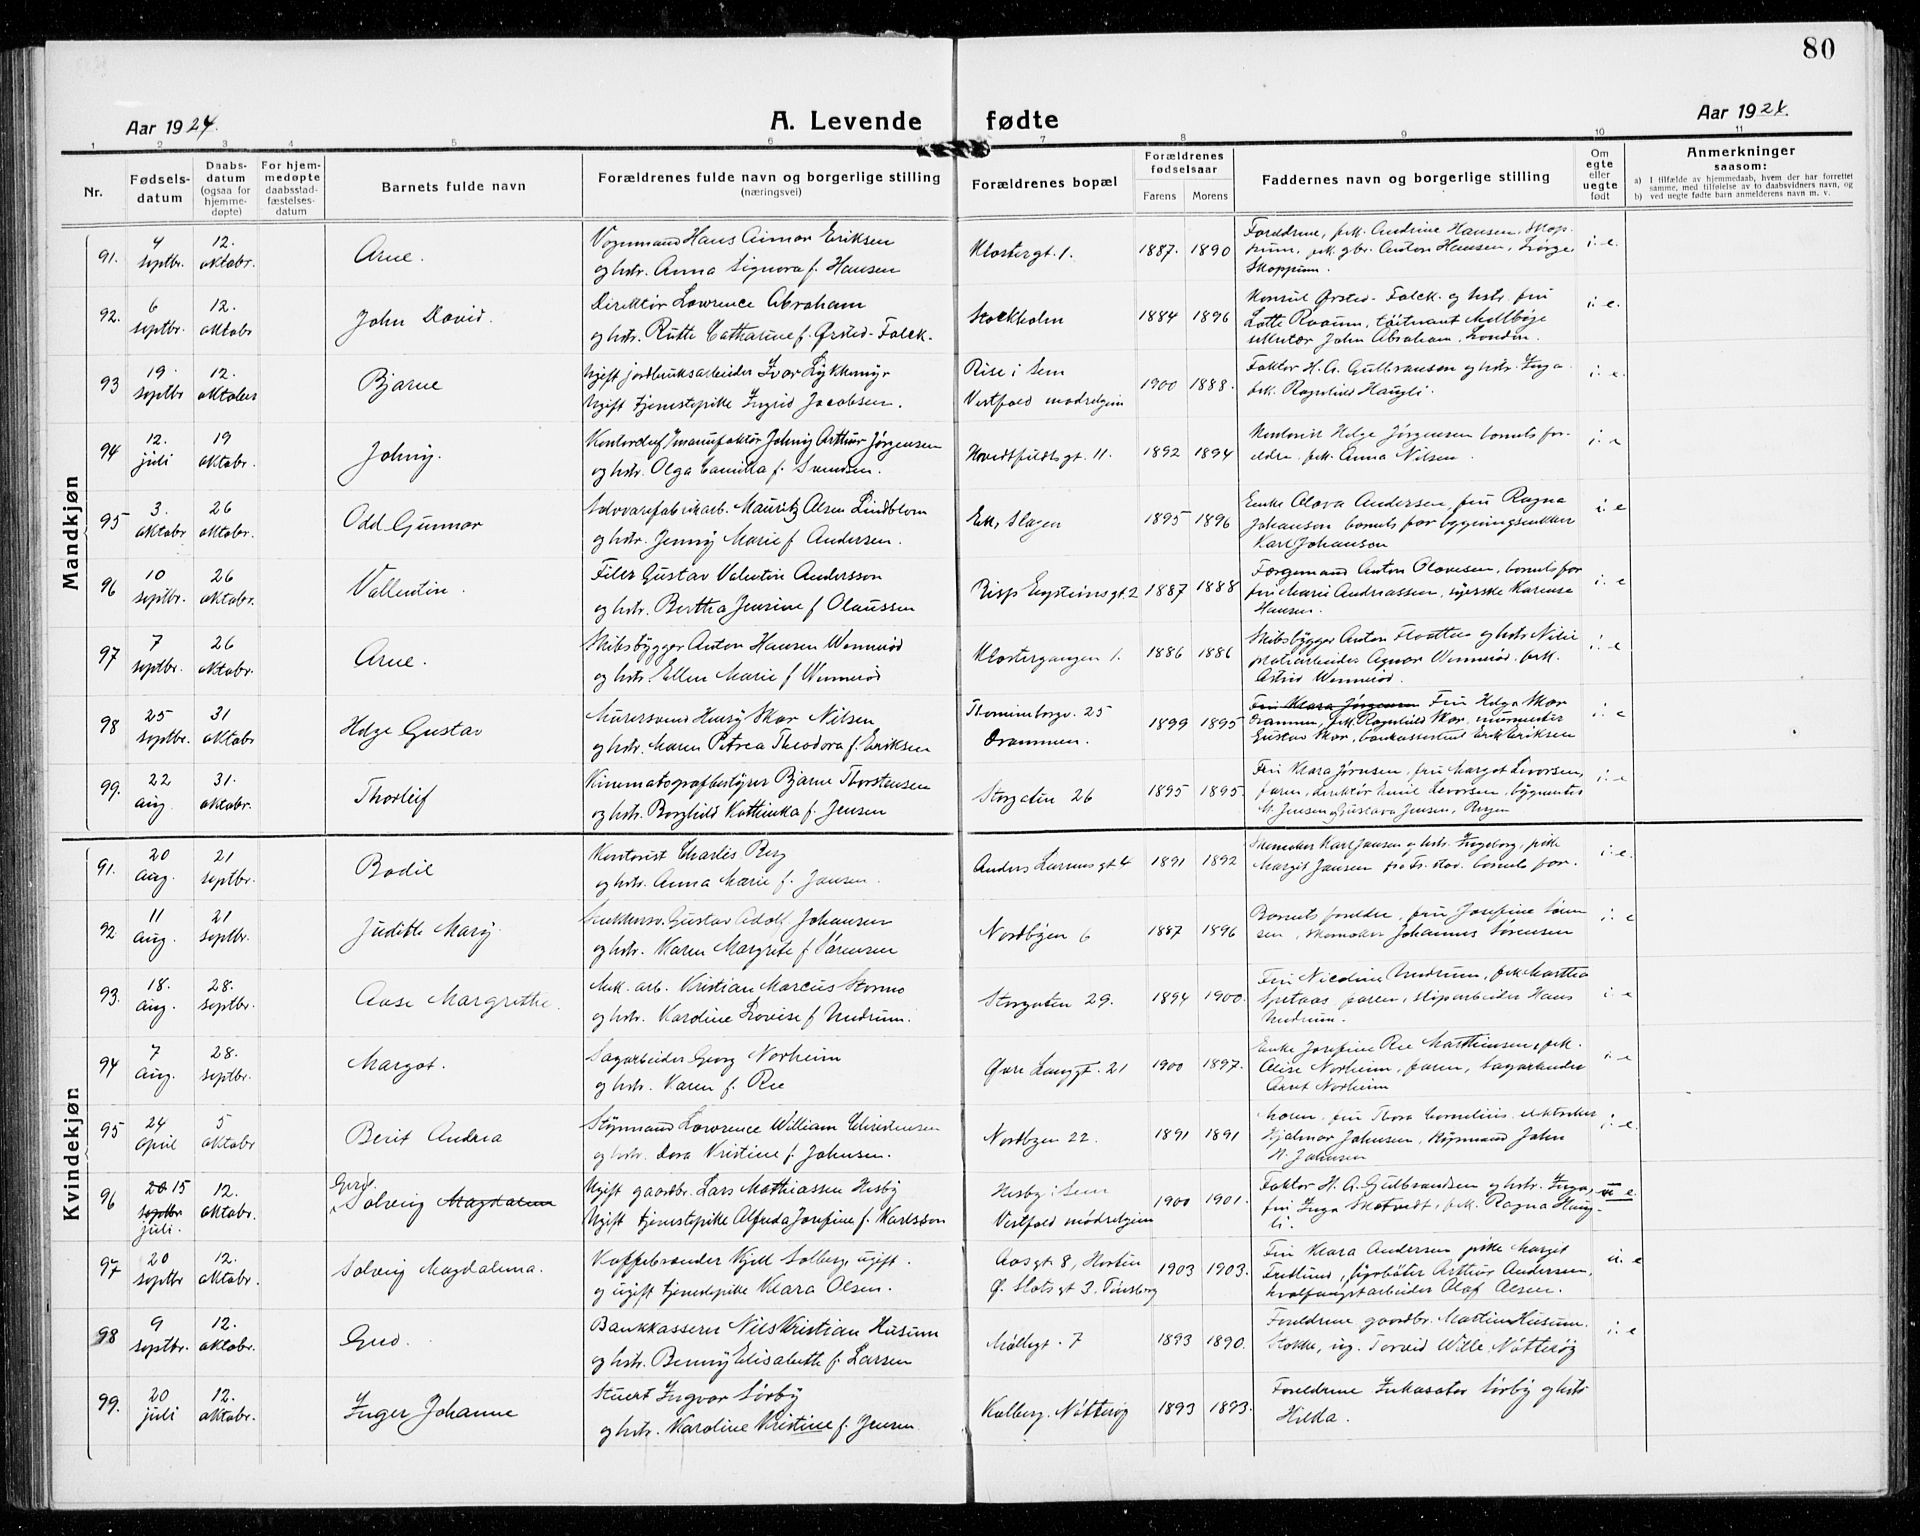 80
Aar 1924.
A. Levende fødte
Aar 1924.
1 2 3 4 5 6 7 8 9 10 11
Nr.
Fødsels-
datum
Daabs-
datum
(ogsaa for
hjemme-
døpte)
For hjem-
medøpte
daabsstad-
fæstelses-
datum
Barnets fulde navn
Forældrenes fulde navn og borgerlige stilling
(næringsvei)
Forældrenes bopæl
Forældrenes
fødselsaar
Farens Morens
Faddernes navn og borgerlige stilling
Om
egte
eller
uegte
født
Anmerkninger
saasom:
a) I tilfælde av hjemmedaab, hvem der har forrettet
samme, med tilføielse av to daabsvidners navn, og
b) ved uegte fødte barn anmelderens navn m. v.
Mandkjøn
91. 4 septbr. 12. oktobr. Arne.
Vognmand Hans Gunnar Eriksen
og hstr. Anna Signora f. Hansen
Klostergt. 1. 1887. 1890
Foreldrene, frk. Andrine Hansen, Skop-
pum, frk. gbr. Anton Hansen,
Skoppum. i. e.
92. 6 septbr. 12. oktobr John David.
Direktør Lawrence Abraham
og hstr. Ruth Catharine f. Ørsted-Falck.
Stockholm 1884 1896
Konsul Ørsted-Falck og hstr. fru
Lotte
John Abraham, London. i. e.
93 19. septbr 12. oktober Bjarne
Ugift jordbruksarbeider Ivar Lykkemyr
Ugift tjenestepike Ingrid Jacobsen.
Rise i Sem
Vestfold mødrehjem 1900 1888.
Faktor H. A. Gulbransen og hstr. Inga.
frk. Ragnhild Haugli. i. e.
94 12. juli 19 oktobr. Johny.
Johny Arthur Jørgensen
og hstr. Olga Camilla f. Svendsen.
11. 1892 1894
Kontorist Helge Jørgensen barnets for-
eldre, frk. Anna Nilsen. i. e
95 3. oktobr 26 oktobr. Odd Gunnar
Mauritz Olsen Lindblom
og hstr. Jenny Marie f Andersen.
Eik, Slagen 1895 1896
Enke Olava Andersen, fru Ragna
Johanson barnets far bygningssnekker
Karl Johanson i. e
96 10 septbr. 26 oktobr. Vallentin.
Filer Gustav Valentin Andersson
og hstr. Bertha Jensine f Olaussen
Bisp Eysteinsgt. 2 1887 1888
Anton Olavesen, barnets far
fru Marie Andreassen, syerske Karense
Hansen. i. e
97 7 septbr. 26 oktobr. Arne.
Skibsbygger Anton Hansen Wennerød
og hstr. Ellen Marie f Wennerød
Klostergangen 1. 1886 1886
Skibsbygger Anton og hstr
Agnar Wennerød. frk.
Astrid Wennerød. i. e
98 25 septbr. 31 oktobr Helge Gustav
Murersvend Henry Skar Nilsen
og hstr. Maren Petrea Theodora f. Eriksen
25
Drammen. 1899 1895
Fru Klara Jørgensen Fru Helga Skar
Drammen, frk. Ragnhild Skar, murmester
Gustav Skar, bankassistent Erik Eriksen i. e
99. 22 aug. 31. oktobr. Thorleif
Kinematografbestyrer Bjarne Thorstensen
og hstr. Borghild Kathinka f. Jensen
Storgaten 26 1895 1895.
Fru Klara Jørnsen, fru Margot Livorsen,
faren, direktør Emil Livorsen, bygmester
M. Jensen og Gustava Jensen, Bergen i. e
Kvindekjøn
91. 20 aug. 21 septbr. Bodil
Kontorist Charles Berg
og hstr. Anna Marie f. Jansen.
Anders Larsens gt 4 1891 1892
Skomaker Karl Jansen og hstr. Ingeborg, pike
Margit Jansen barnets far. i. e.
92 11 aug. 21 septbr. Judith Mary
Snekkersv. Gustav Adolf Johansen
og hstr. Karen Margrete f. Sørensen
Nordbyen 6 1887 1896
Barnets foreldre, fru Josefine Søren
sen, skomaker Johannes Sørensen i. e
93. 18. aug. 28. septbr. Aase Margrethe.
Mek. arb. Kristian Marcus Stormo
og hstr. Karoline Lovise f Undrum.
Storgaten 29. 1894 1900.
Fru Nicoline Undrum, frk Martha
faren, sliparbeider Hans
Undrum. i. e
94 7 aug. 28. septbr. Margot.
Sagarbeider Georg Norheim
og hstr. Karen f. Ree
Øvre Langgt. 21 1900 1897.
Enke Josefine Ree Marthinsen, frk.
Alise Norheim, faren, sagarbeider
Norheim i. e
95 24 april 5 oktobr Berit Andrea
Styrmand Lawrence William Christensen
og hstr. Dora Kristine f. Johnsen.
Nordbyen 22. 1891 1891
Moren, fru Thora Cornelius,
Hjalmar Johnsen, styrmand John
N. Johnsen i. e.
96 20 15 septbr juli 12. oktobr. Gerd. Solveig Magdalena
Ugift gaardbr. Lars Mathiassen Hesby
Ugift tjenestepike Alfreda Josefine f. Karlsson
Hesby i Sem
Vestfold mødrehjem 1900 1901.
Faktor H. A. Gulbrandsen og hstr. Inga,
fru Inga Skotvedt, frk. Ragna Haug-
li. u e.
97 20 septbr 12. oktobr. Solveig Magdalena.
Kaffebrænder Kjell Solberg, ugift.
og ugift tjenestepike Klara Olsen.
Aasgt 8, Horten
Ø. Slotsgt 3. Tønsberg 1903 1903.
Fru Klara Andersen pike Margit
Fredlund, Arthur Andersen,
hvalfangstarbeider Olaf Olsen. u. e
98 9 septbr. 12. oktobr. Gud.
Bankkasserer Nils Kristian Husum
og hstr. Benny Elisabeth f. Larsen
Møllegt. 7 1893 1890.
Foreldrene gaardbr. Martin Husum.
Stokke, ug. Torvid Wille, Nøtterøy i. e
99. 20 juli 12. oktobr. Inger Johanne
Stuert Ingvar Sørby
og hstr. Karoline Kristine f. Jensen
Kalberg. Nøtterøy 1893 1893.
Foreldrene Inkasator Sørby og hstr
Hilda.